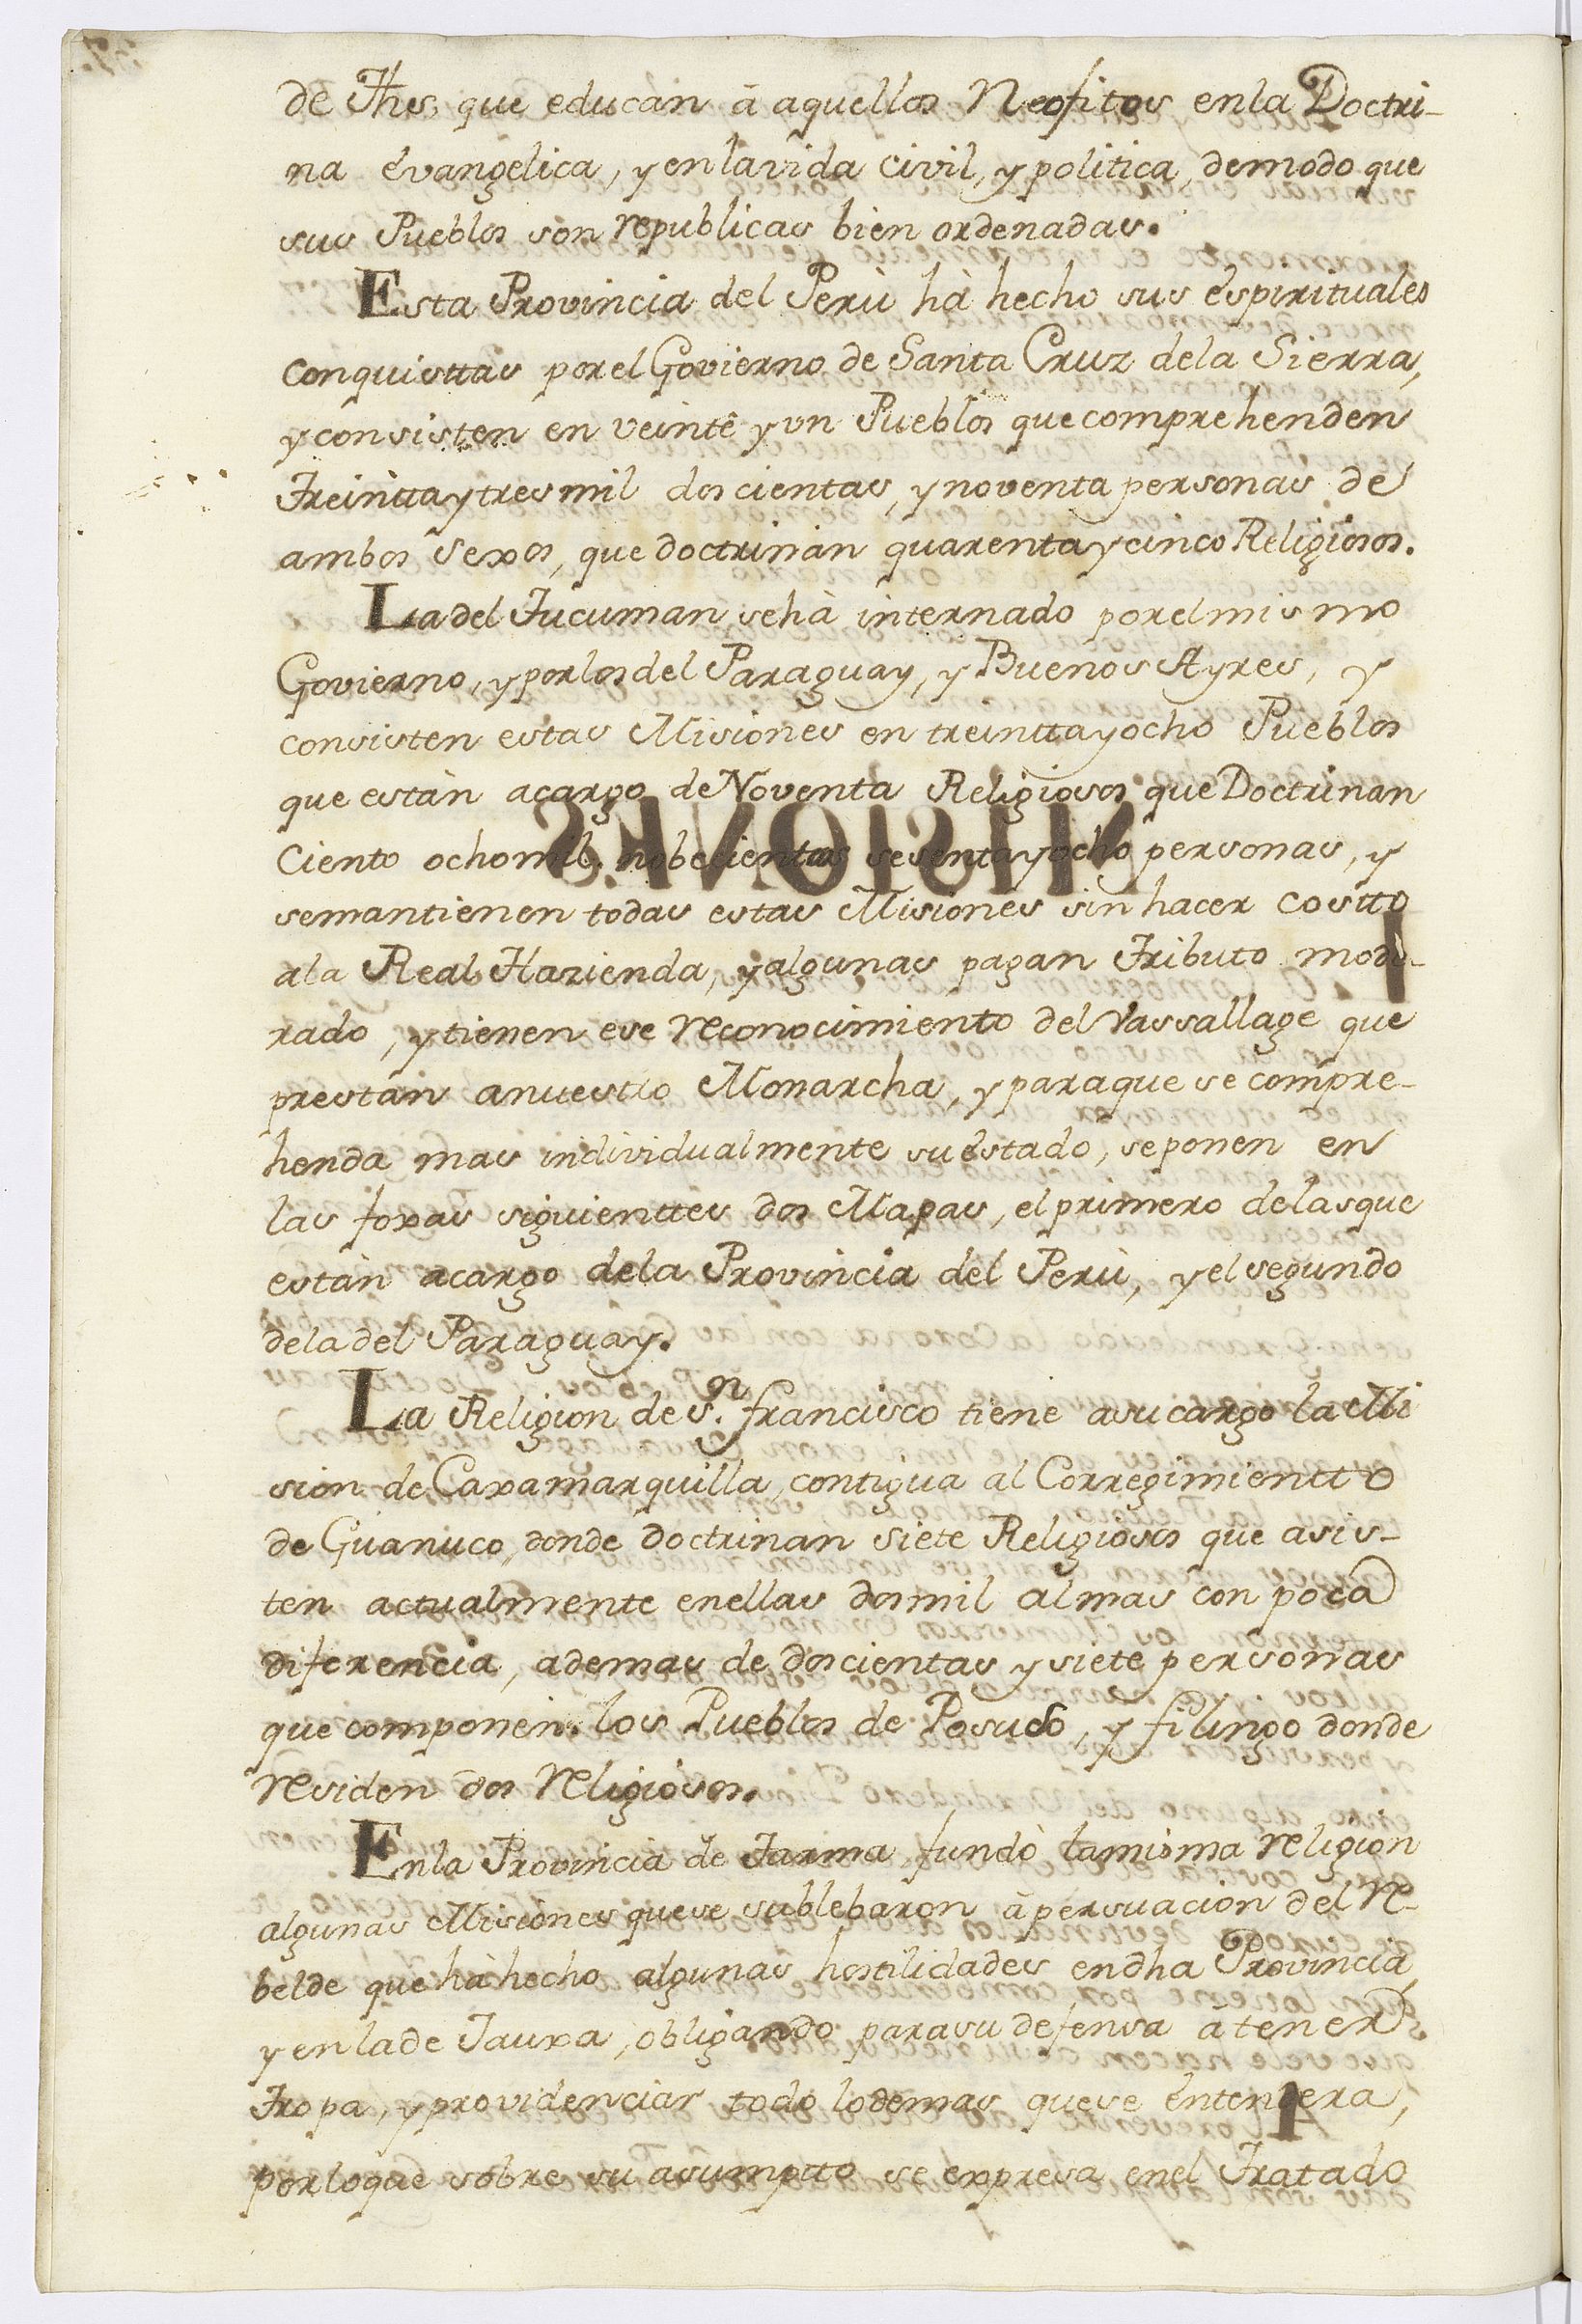 de Jhs, que educàn à aquellos Neofitos enla Doctri-
na evangelica, y en la vida civil, y politica, demodo que
sus Pueblos son republicas bien ordenadas.
Esta Provincia del Perù hà hecho sus espirituales
conquisttas por el Govierno de Santa Cruz dela Sierra,
y consisten en veinte y un Pueblos que comprehenden
Treintta y tres mil doscientas, y noventa personas de
ambos sexos, que doctrinàn quarenta y cinco Religiosos.
La del Tucuman se hà internado por el mismo
Govierno, y por los del Paraguay, y Buenos Ayres, y
consisten estas Misiones en treintta y ocho Pueblos
que estàn acargo de Noventa Religiosos que Doctrinan
Ciento ocho mil, nobecientas sesenta y ocho personas, y
semantienen todas estas Misiones sin hacer costto
ala Real Hazienda, y algunas pagan Tributo mode-
rado, y tienen ese reconocimiento del Vassallage que
prestan anuestro Monarcha, y paraque se compre-
henda mas individualmente su estado, se ponen en
las foxas siguienttes dos Mapas, el primero delas que
estàn acargo dela Provincia del Perù, y el segundo
dela del Paraguay.
La Religion de Sn. francisco tiene asu cargo la Mi
sion de Caxamarquilla, contigua al Corregimientto
de Guanuco, donde doctrinan siete Religiosos que asis-
ten actualmente enellas dosmil almas con poca
diferencia, ademas de doscientas y siete personas
que componen los Pueblos de Posuso, y filingo donde
residen dos religiosos.
Enla Provincia de Tarma fundò lamisma religion
algunas Misiones quese sublebaron à persuacion del re-
belde que hà hecho algunas hostilidades en dha Provincia,
y en la de Jauxa, obligando parasu defensa à tener
Tropa, y providenciar todo lodemas quese entendera,
por loque sobre su asumptto se expresa enel Tratado